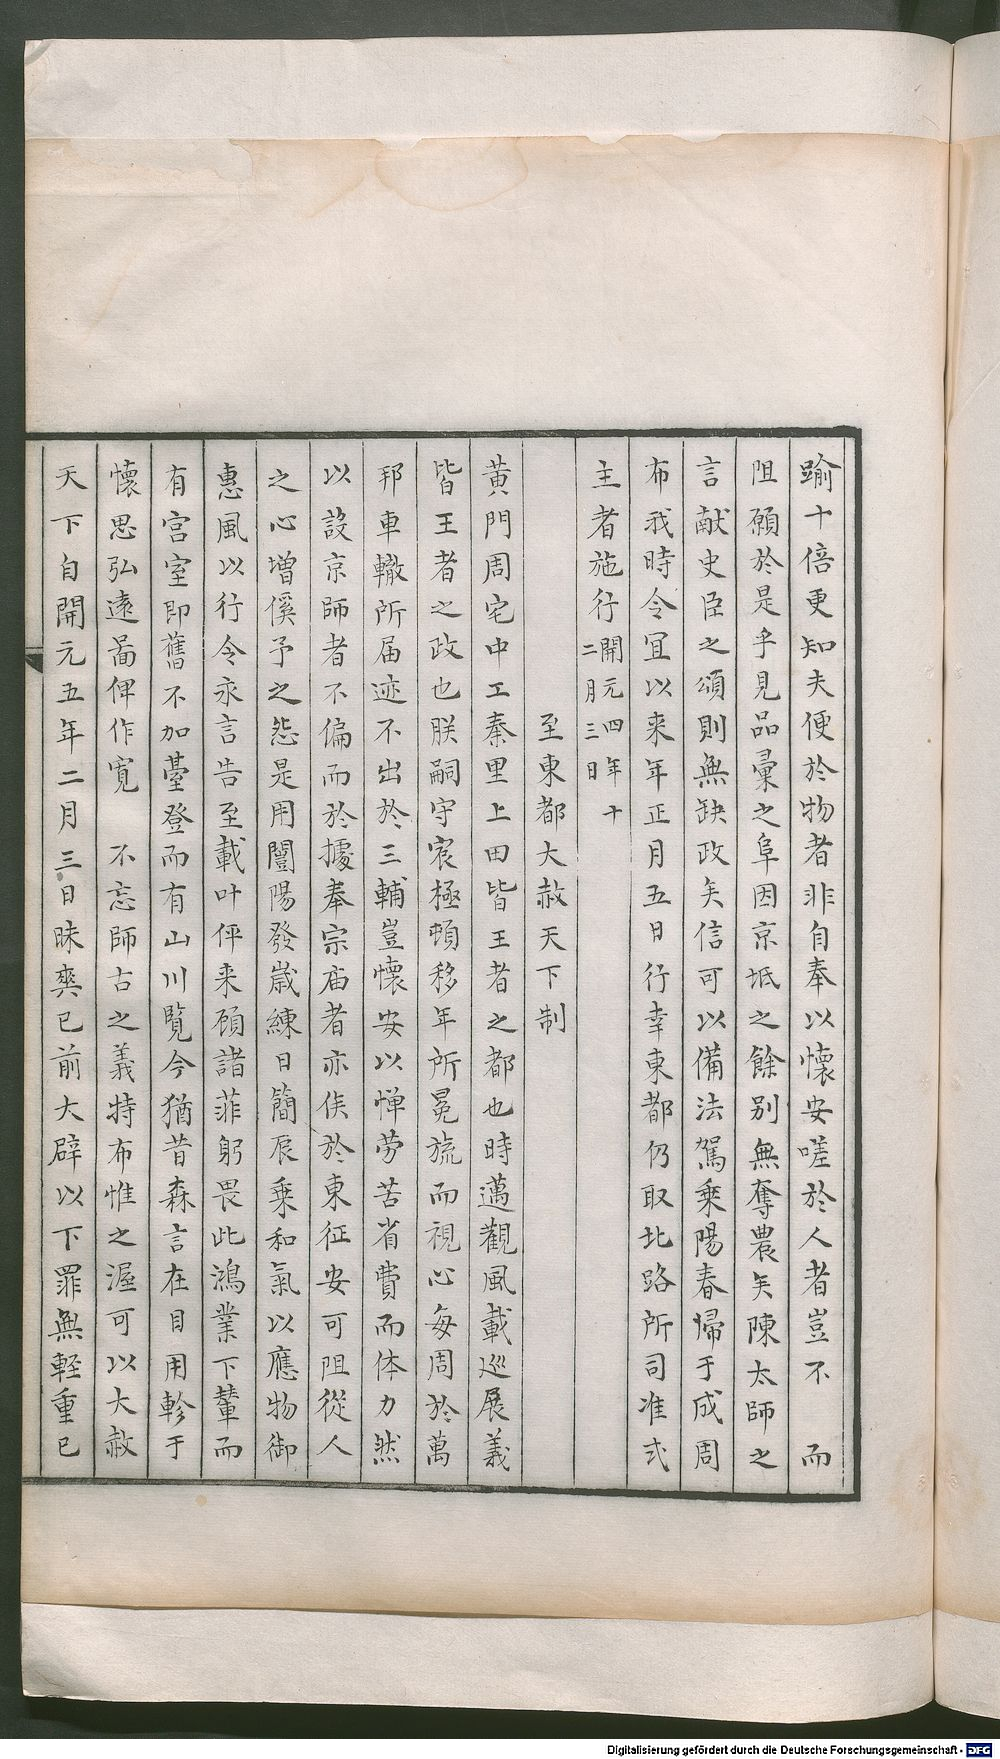 踰十倍更知夫便於物者非自奉以懷安嗟於人者豈不　而
阻願於是乎見品彙之阜因京坻之餘別無奪農矣陳太師之
言獻史臣之頌則無缺政矣信可以備法駕乘陽春歸于成周
布我時令宜以来年正月五日行幸東都仍取北路所司准式
主者施行開元四年十二月三日
至東都大赦天下制
黃門周宅中土秦里上田皆王者之都也時邁觀風載巡展義
皆王者之政也朕嗣守宸極頓移年所冕旒而視心每周於萬
邦車轍所届迹不出於三輔豈懷安以憚劳苦省費而体力然
以設京師者不偏而於據奉宗庙者亦俟於東征安可阻從人
之心增傒予之怨是用闓陽發歲練日簡辰乘和氣以應物御
惠風以行令永言告至載叶伻来顧諸菲躬畏此鴻業下輦而
有宮室即舊不加臺登而有山川覧今猶昔森言在目用軫于
懷思弘遠啚俾作寬　不忘師古之義特布惟之渥可以大赦
天下自開元五年二月三日昧爽已前大辟以下罪無軽重已
Digitalisierung gefördert durch die Deutsche Forschungsgemeinschaft - DFG